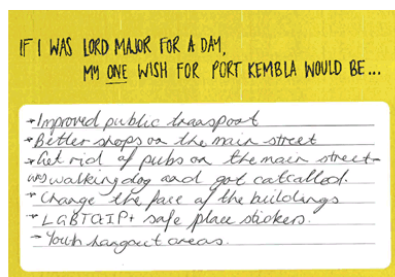 IF I WAS LORD MAJOR FOR A DAY,
MY ONE WISH FOR PORT KEMBLA WOULD BE...
* Improved public transport
* Better shops on the main street
* Get rid of pubs on the main street -
was walking dog and got catcalled.
* Change the face of the buildings
* LGBTQIP+ safe place stickers.
* Youth hangout areas.